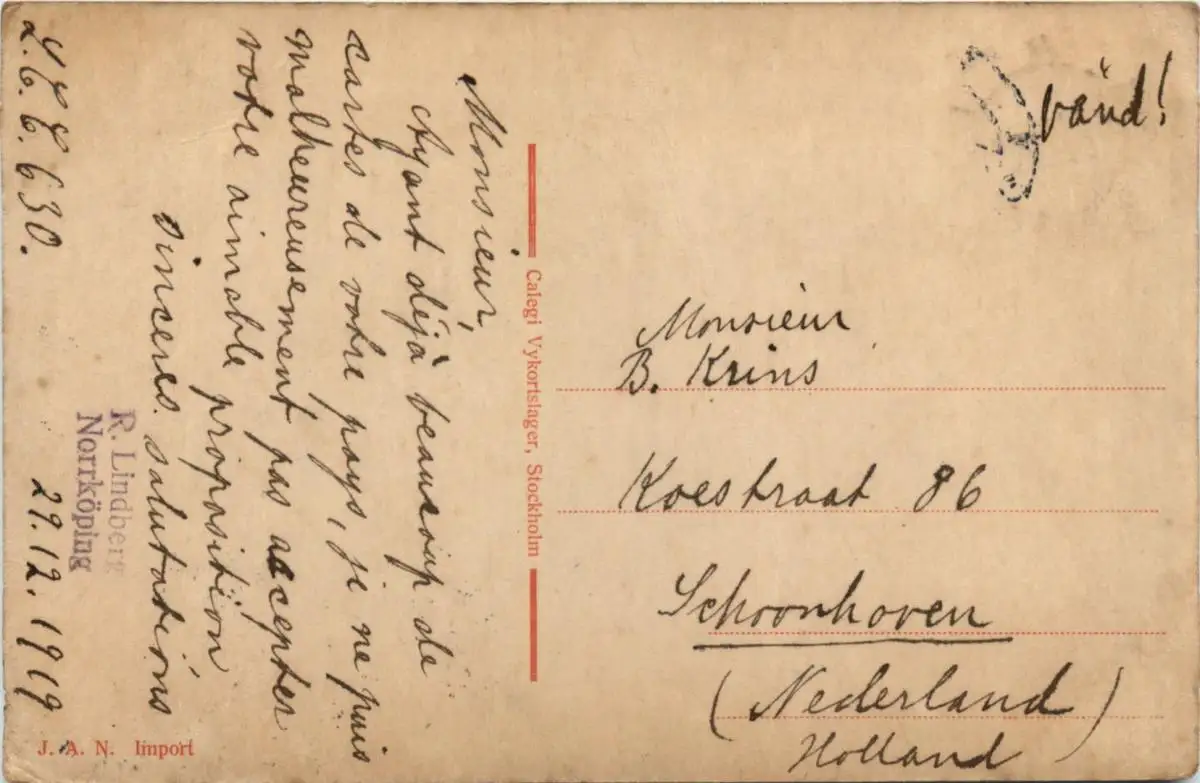 Monsieur,
Ayant déjà beaucoup de
cartes de votre pays, je ne puis
malheureusement pas accepter
votre aimable proposition
Sincères salutations
R. Lindberg
Norrköping
29.12.1919
J. A. N. Import
Calegi Vykortslager, Stockholm
vänd!
Monsieur
B. Krins
Koestraat 86
Schoonhoven
(Nederland)
Holland